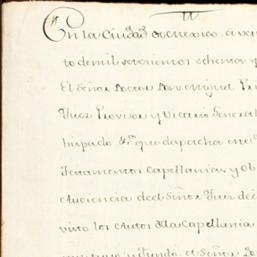 En la Ciud.ᵈ de Mexico, à vei
to de mil setecientos ochenta y
El Señor Doctor Don Miguel Pri
Juez Provisor y Vicario General
bispado &.ᵃ que despacha en el
Testamentos Capellanias, y Ob
Audiencia de el Señor Juez de
visto los Autos de la Capellania
fundo el Señor